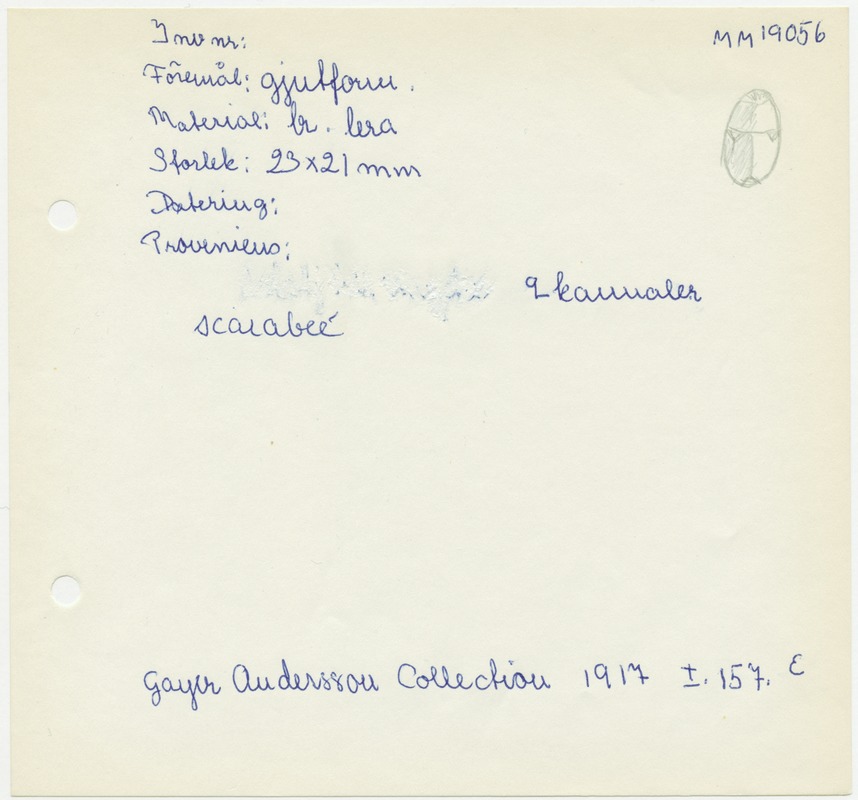 MM19056
Inv nr:
Föremål: gjutform.
Material: br. lera
Storlek: 23x21 mm
Datering:
Proveniens:
2 kannaler
scarabeé
Gayer Andersson Collection 1917 I. 157. E